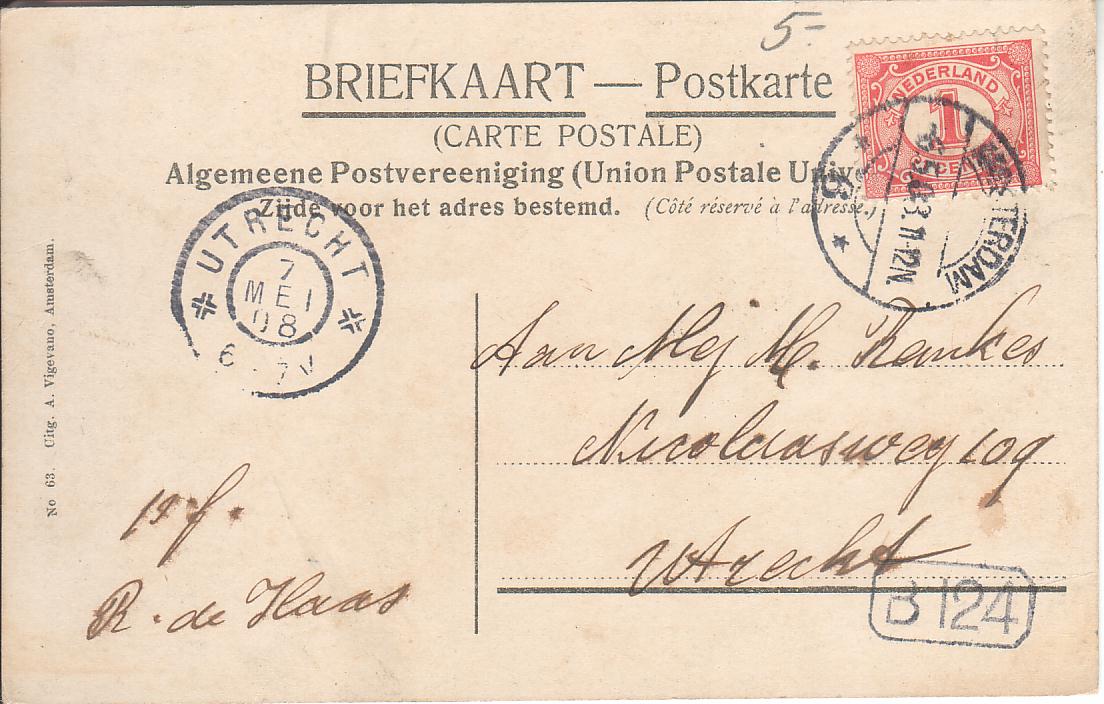 5-
BRIEFKAART — Postkarte
(CARTE POSTALE)
Algemeene Postvereeniging (Union Postale Unive
Zijde voor het adres bestemd. (Côté réservé à l'adresse.)
NEDERLAND
1
CENT
AMSTERDAM
11-12N
UTRECHT
7
MEI
08
6-7V
Aan Mej M. Renkes
Nicolaasweg 109
Utrecht
B 124
R. de Haas
No 63. Uitg. A. Vigevano, Amsterdam.